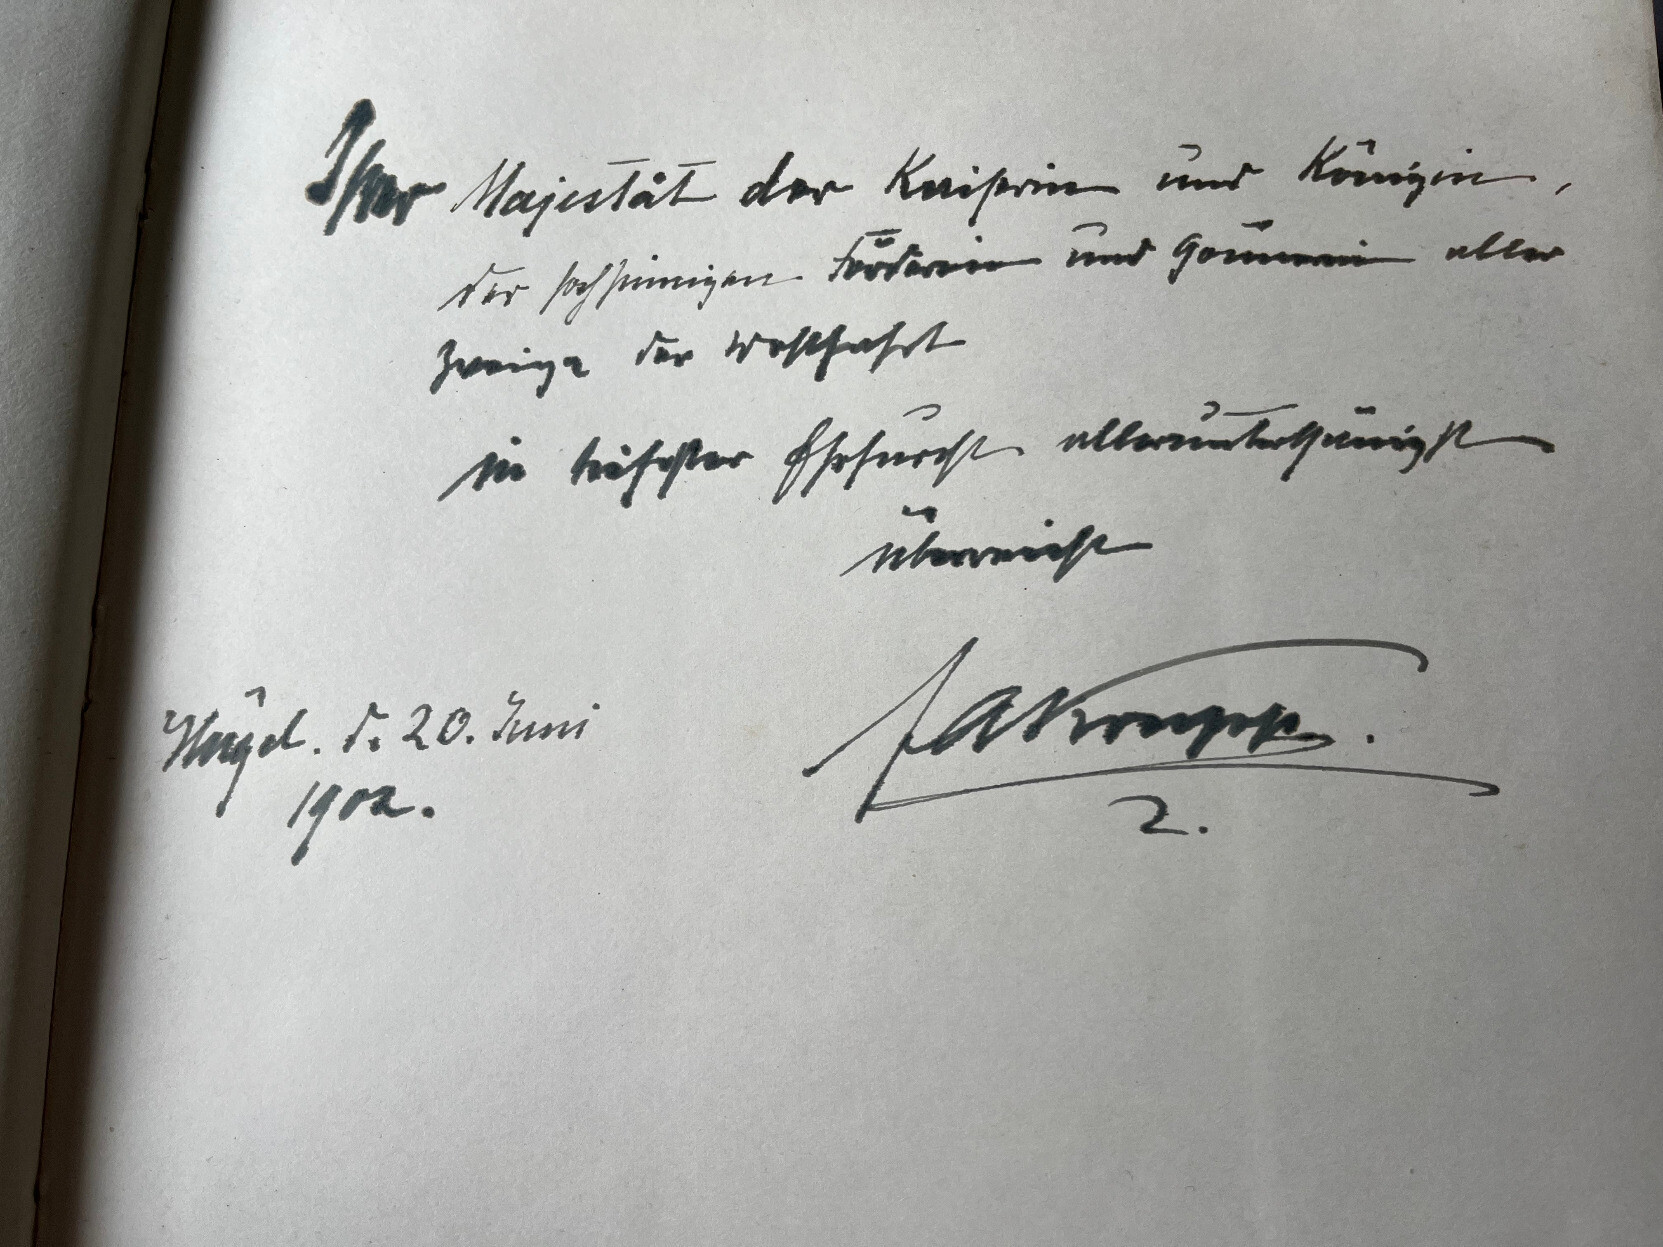 Ihrer Majestät der Kaiserin und Königin,
der hochsinnigen Förderin und Gönnerin aller
Zweige der Wohlfahrt
in tiefster Ehrfurcht allerunterthänigst
überreicht
FAKrupp.
Hügel. d. 20. Juni
1902.
2.